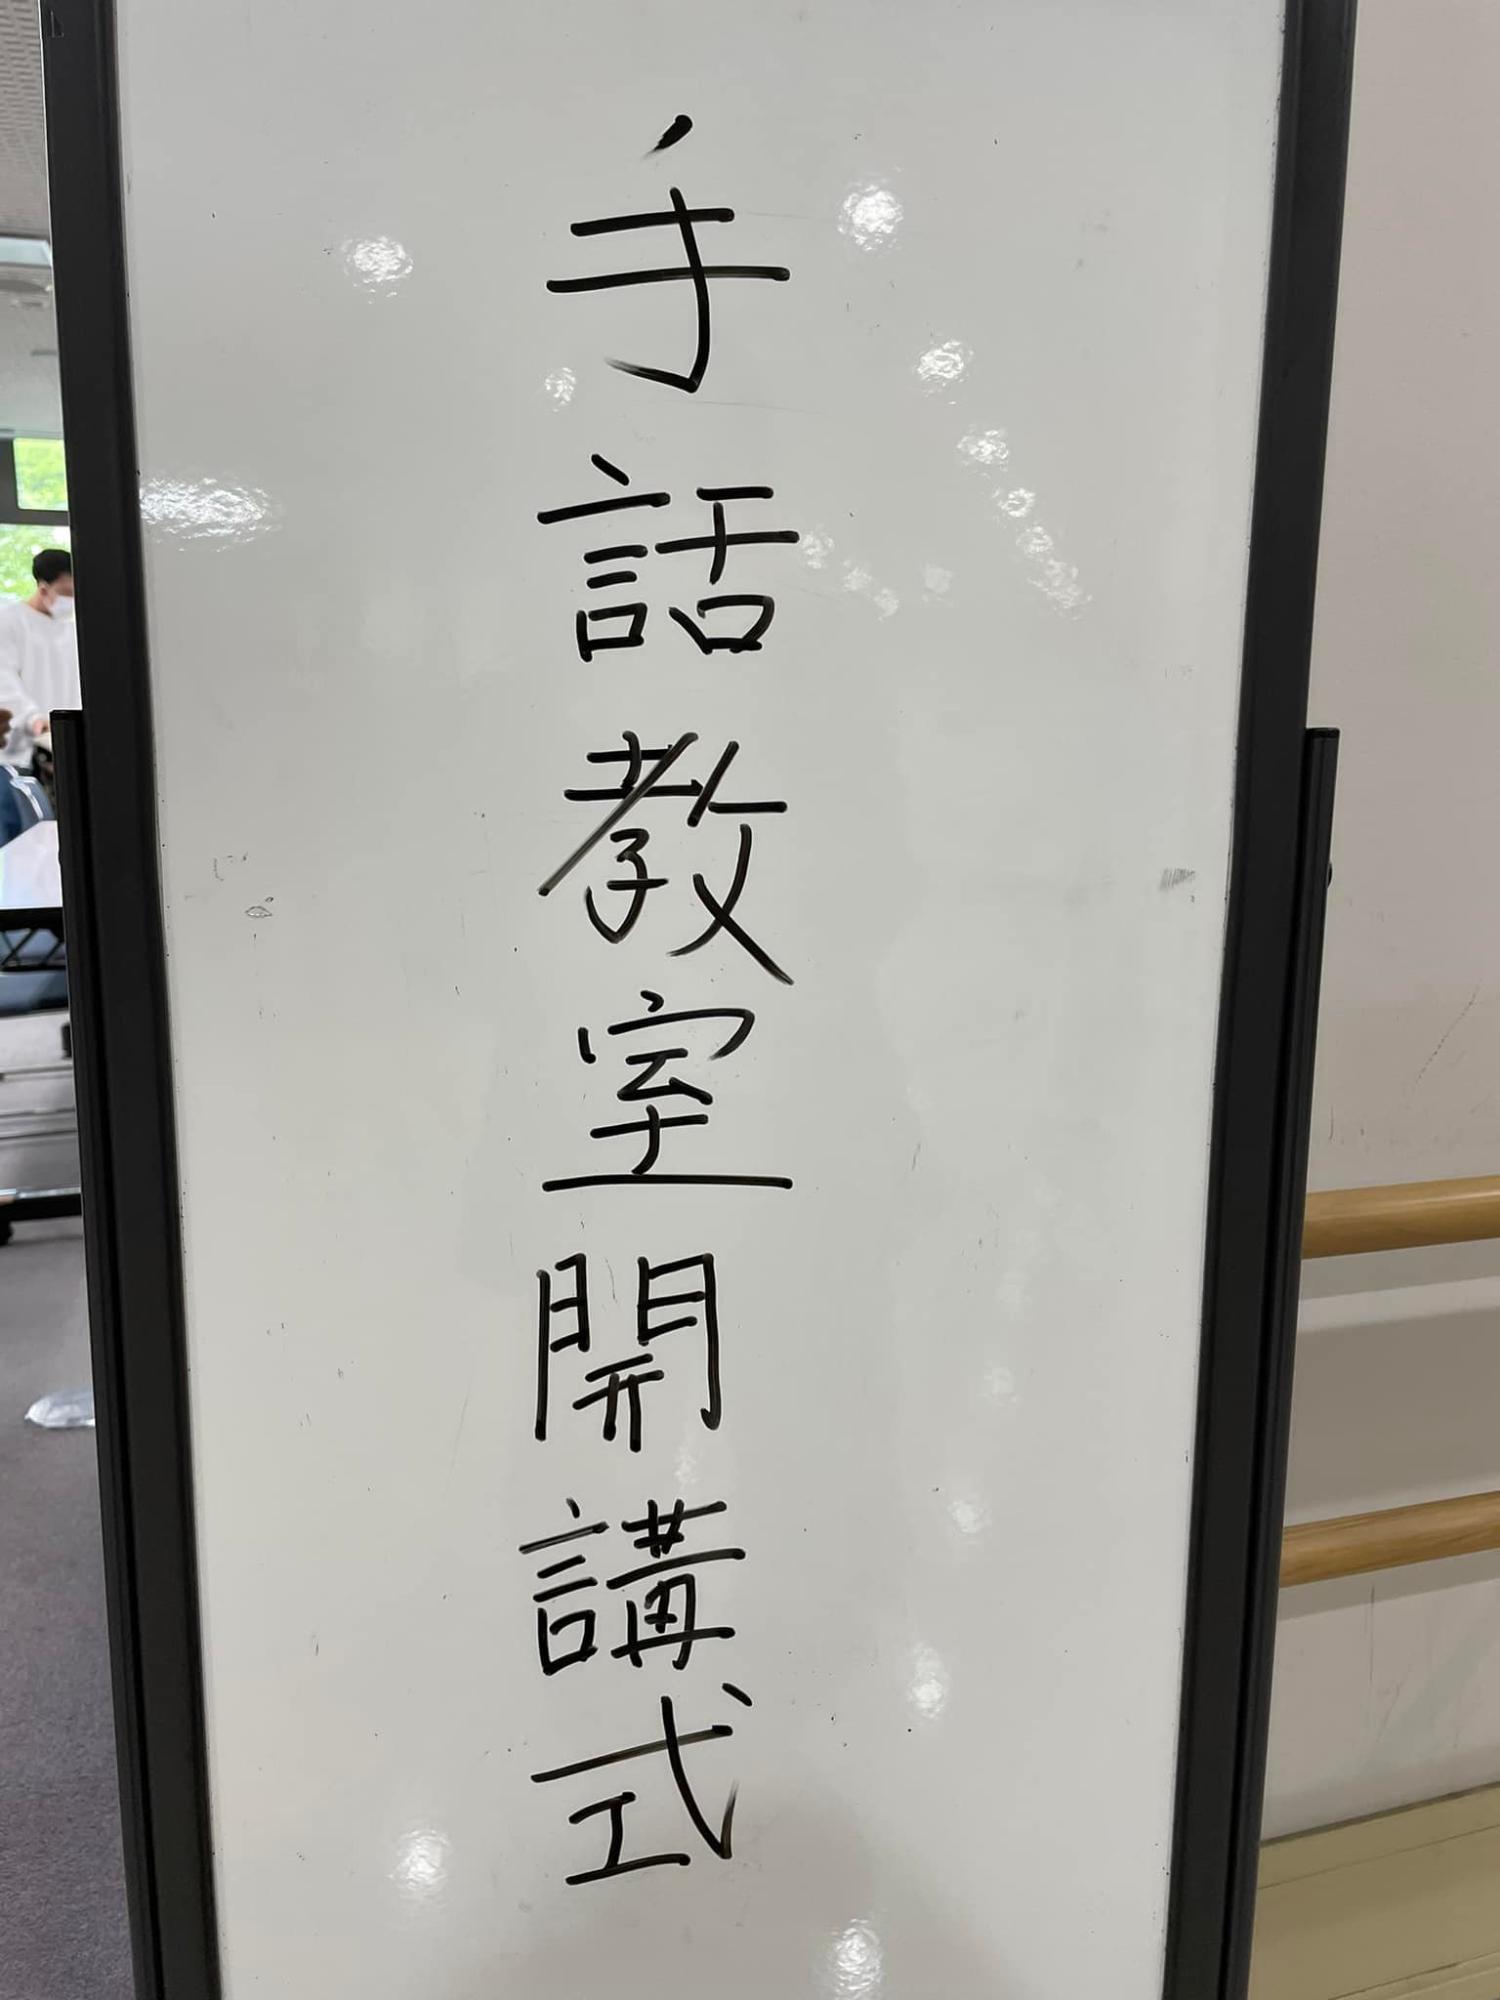 手話教室開講式